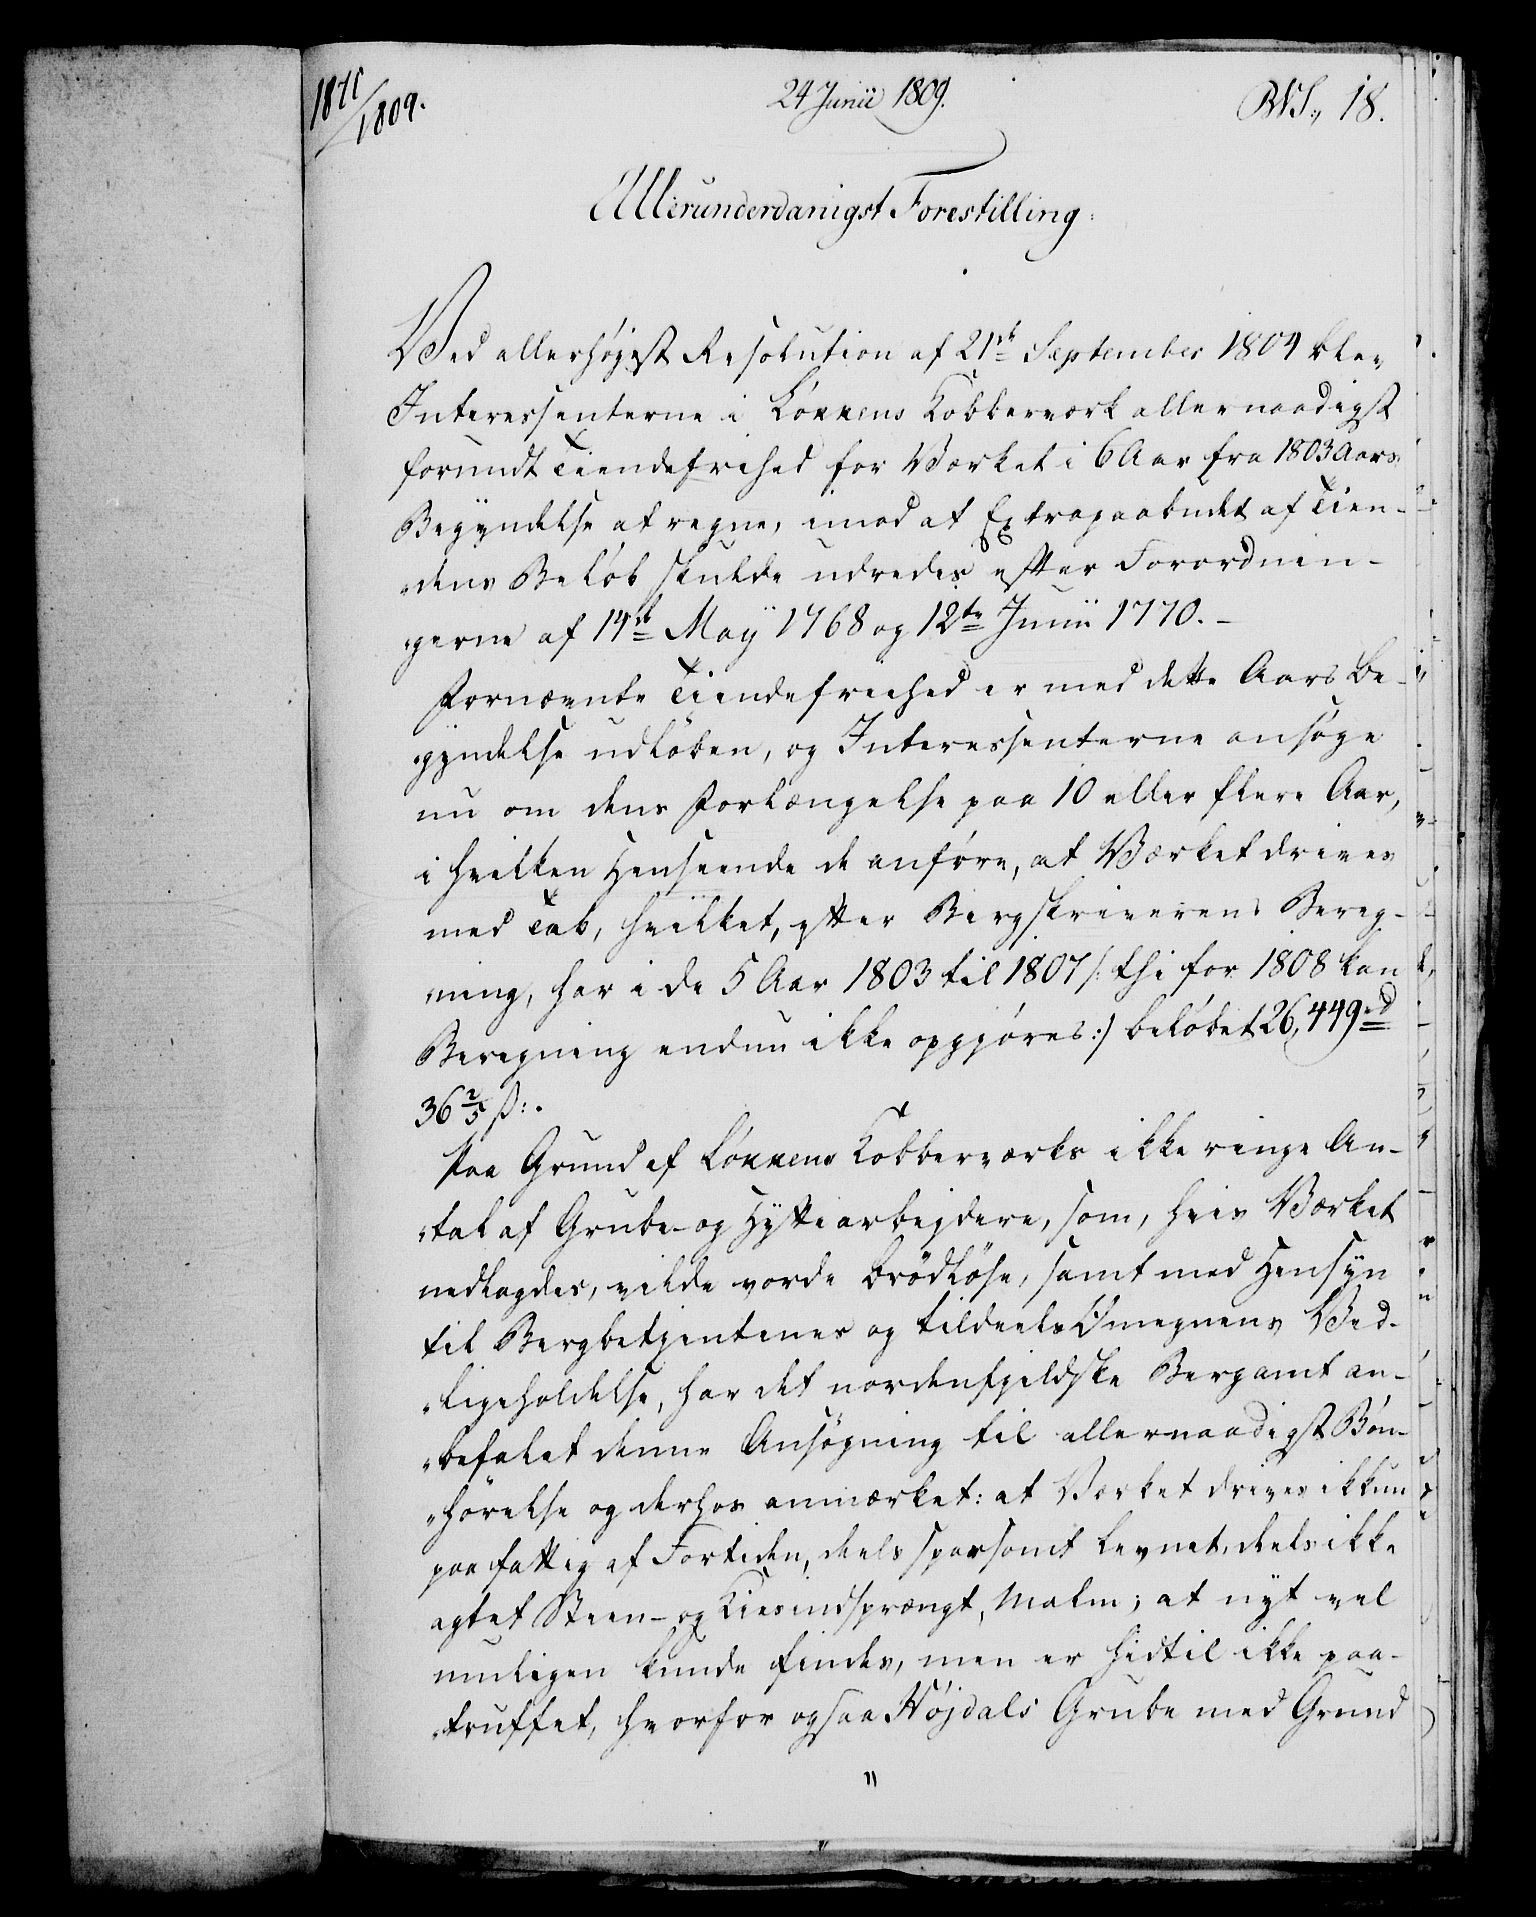 1871/1809.
24 Junii 1809.
No. 18.
Allerunderdanigst Forestilling.
Ved allerhøjest Resolution af 21de September 1804 blev
Interessenterne i Løkkens Kobberværk allernaadigst
forundt Tiendefrihed for Værket i 6 Aar fra 1803 Aars
Begyndelse at regne, imod at Extrapaabudet af Tien-
dens Beløb skulde udredes efter Forordnin-
gerne af 14de May 1768 og 12te Junii 1770. -
Fornævnte Tiendefriehed er med dette Aars Be-
gyndelse udløben, og Interessenterne ansøge
nu om dens Forlængelse paa 10 eller flere Aar,
i hvilken Henseende de anføre, at Værket drives
med Tab, hvilket, efter Bergskriverens Bereg-
ning, har i de 5 Aar 1803 til 1807 /: thi for 1808 kan
Beregning endnu ikke opgjøres :/ beløbet 26,449 rd
36 2/5 ß:.
Paa Grund af Løkkens Kobberværks ikke ringe An-
tal af Grube- og Hyttearbejdere, som, hvis Værket
nedlagdes, vilde vorde brødløse, samt med Hensyn
til Bergbetjentenes og tildeels Omegnens Ved-
ligeholdelse, har det nordenfjeldske Bergamt an-
befalet denne Ansøgning til allernaadigst Bøn-
hørelse og derhos anmærket: at Værket drives ikkun
paa fattig af Fortiden, deels sparsomt levnet, deels ikke
agtet Steen- og Kiesindsprængt, Malm; at nyt vel
muligen kunde findes, men er hidtil ikke paa-
truffet, hvorfor ogsaa Højdals Grube med Grund
"